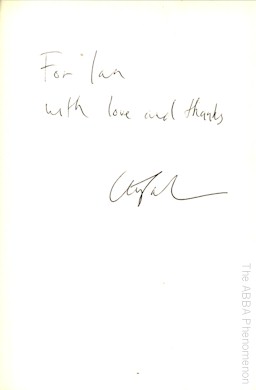 For Ian
with love and thanks
The ABBA Phenomenon